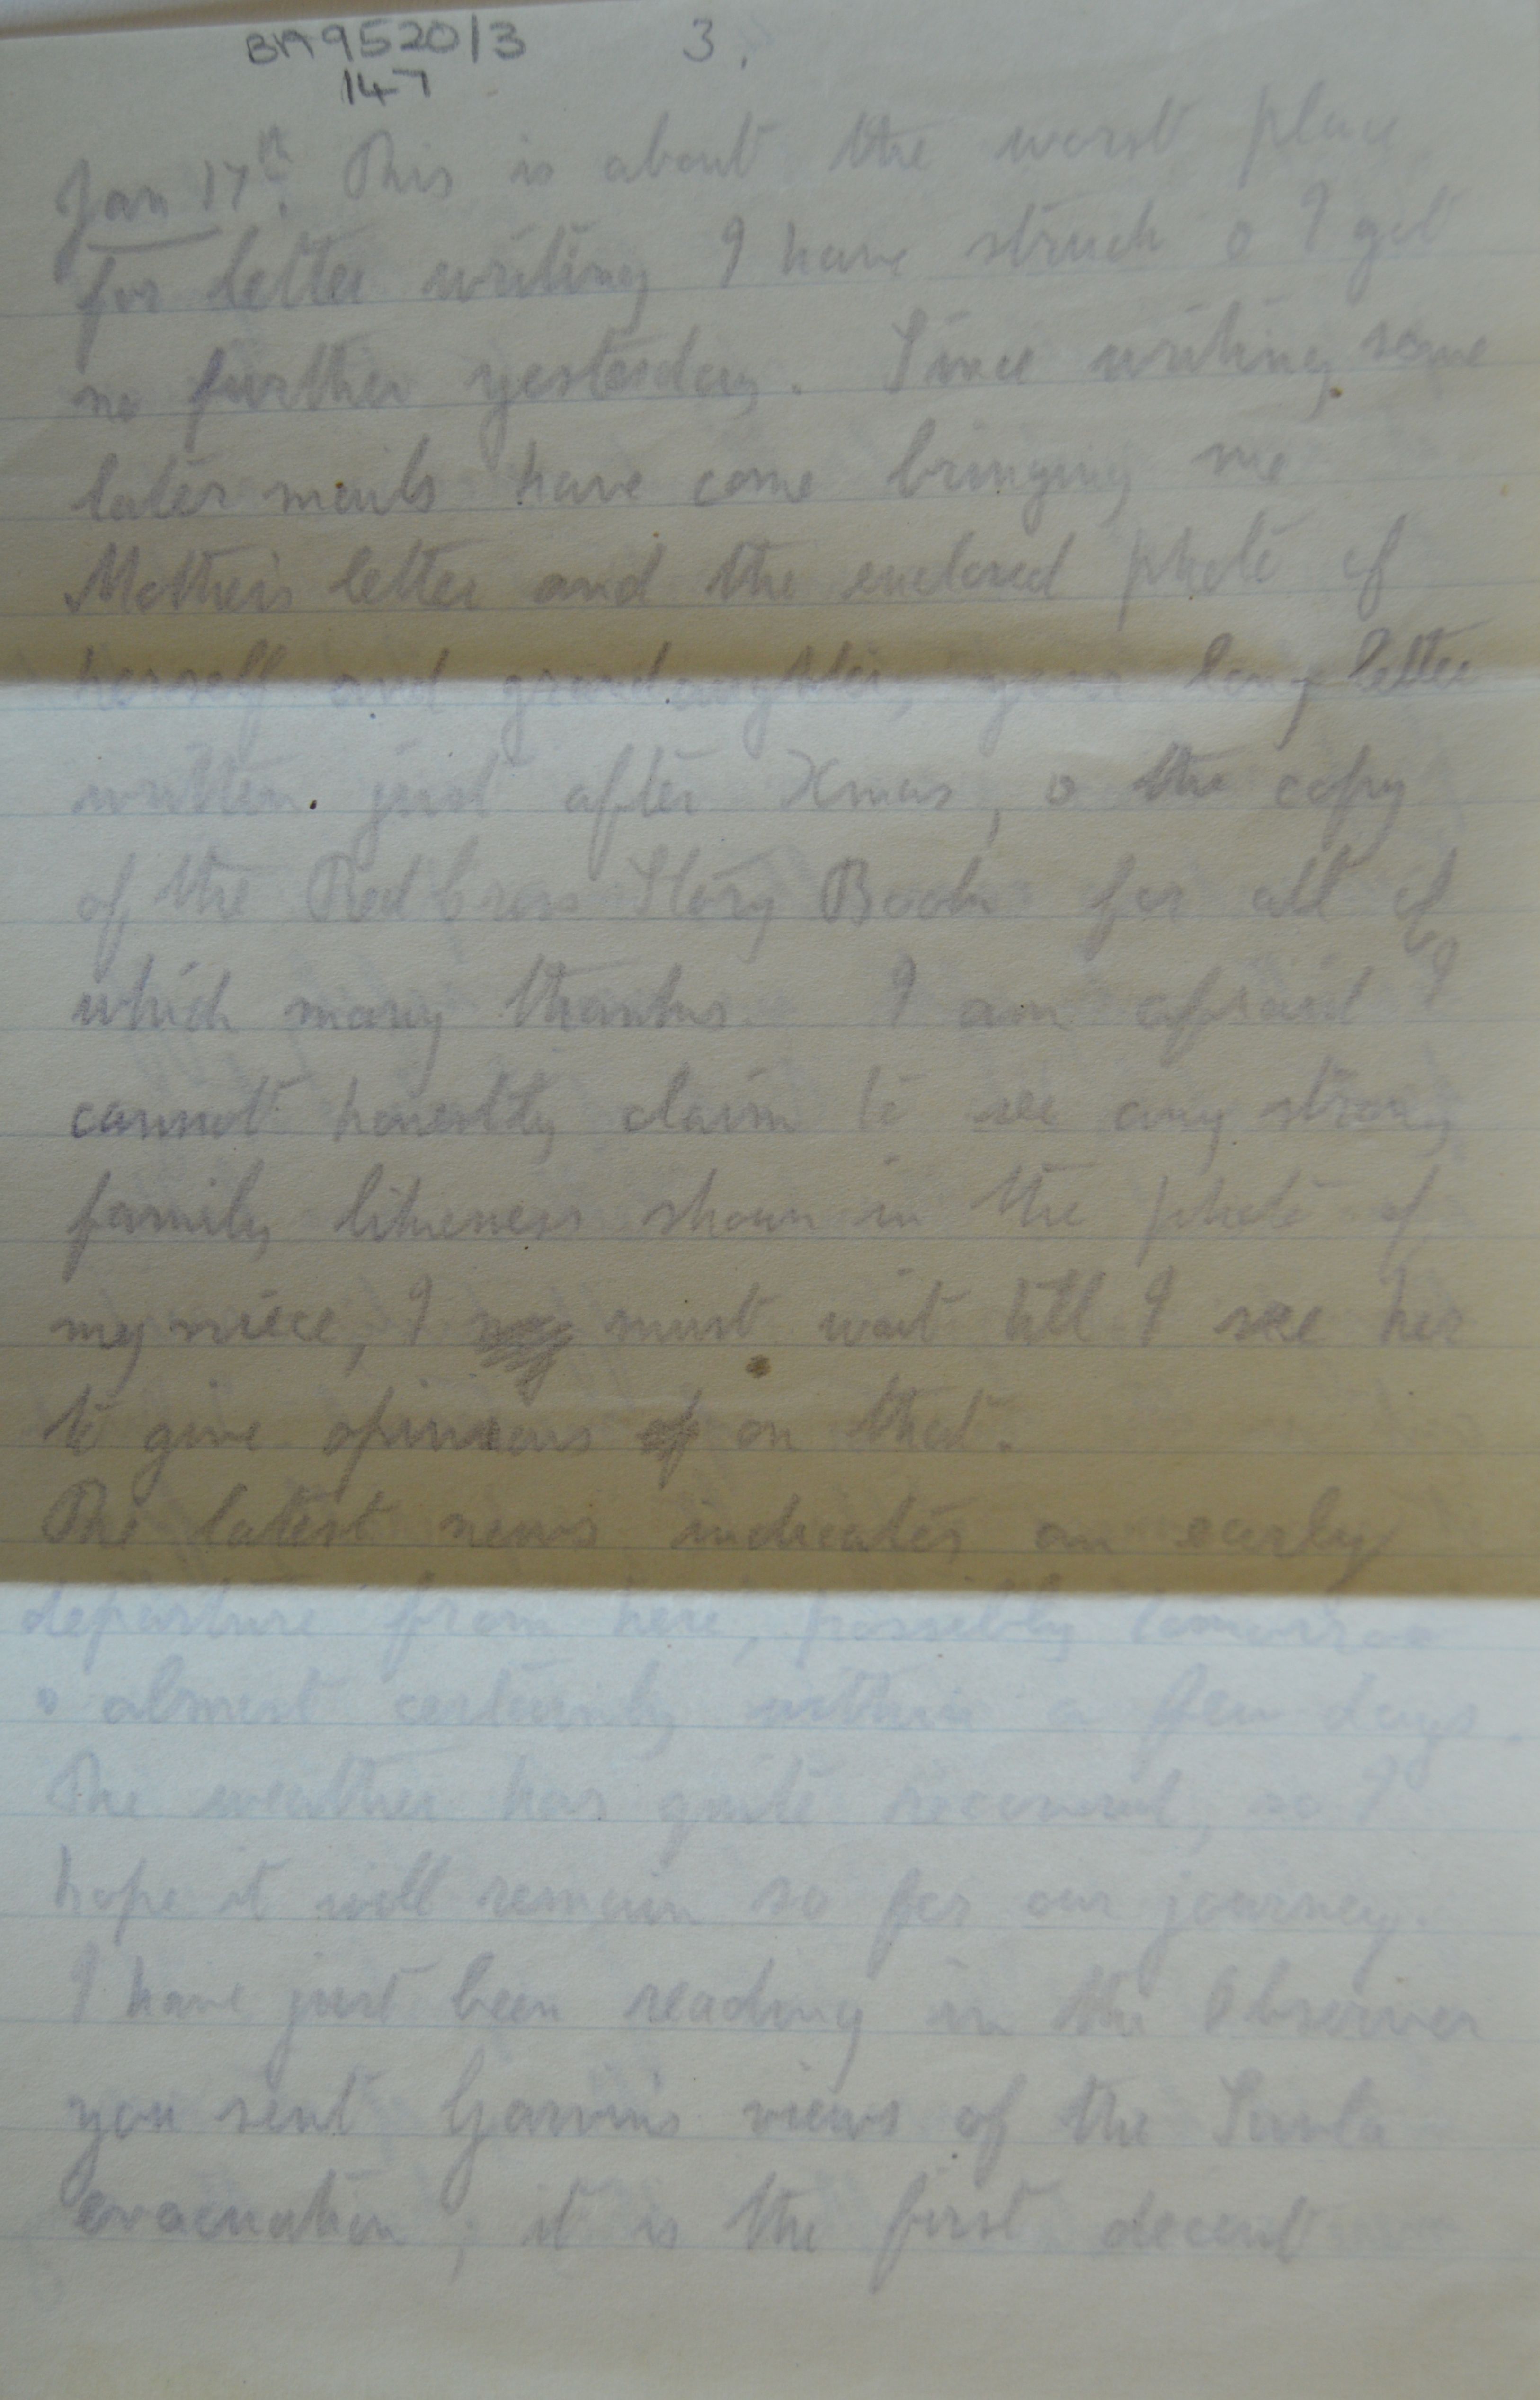 BA9520/3 3.
147
Jan 17th. This is about the worst place
for letter writing I have struck & I got
no further yesterday. Since writing some
later mails have come bringing me
Mother's letter and the enclosed photo of
herself and grandaughter, your long letter
written just after Xmas, & the copy
of the Red Cross Story Book for all of
which many thanks. I am afraid I
cannot honestly claim to see any strong
family likeness shown in the photo of
my niece, I must wait till I see her
to give opinions on that.
The latest news indicates an early
departure from here, possibly tomorrow
& almost certainly within a few days.
The weather has quite recovered, so I
hope it will remain so for our journey.
I have just been reading in the Observer
you sent Garvin's views of the Suvla
evacuation; it is the first decent